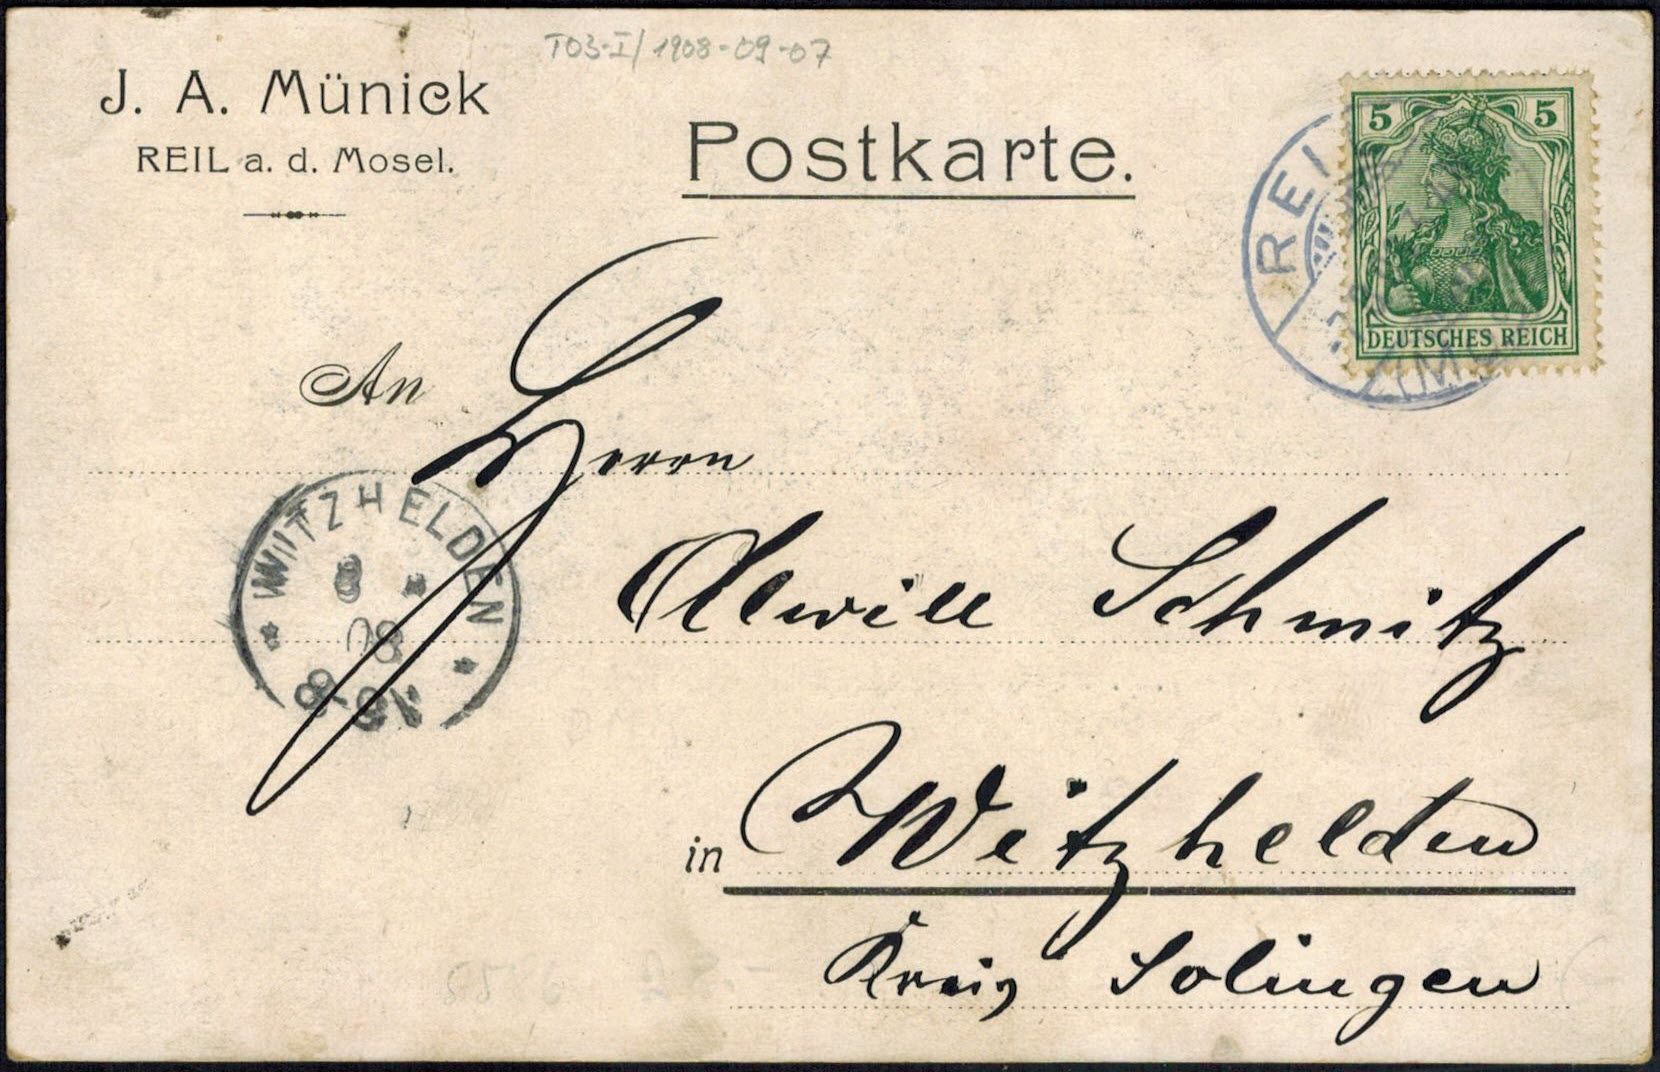 T03-I/1908-09-07
J. A. Münick
REIL a. d. Mosel.
Postkarte.
5 5
DEUTSCHES REICH
REI
An
Herrn
WITZHELDEN
08
8-9V
Alwill Schmitz
in Witzhelden
Kreis Solingen